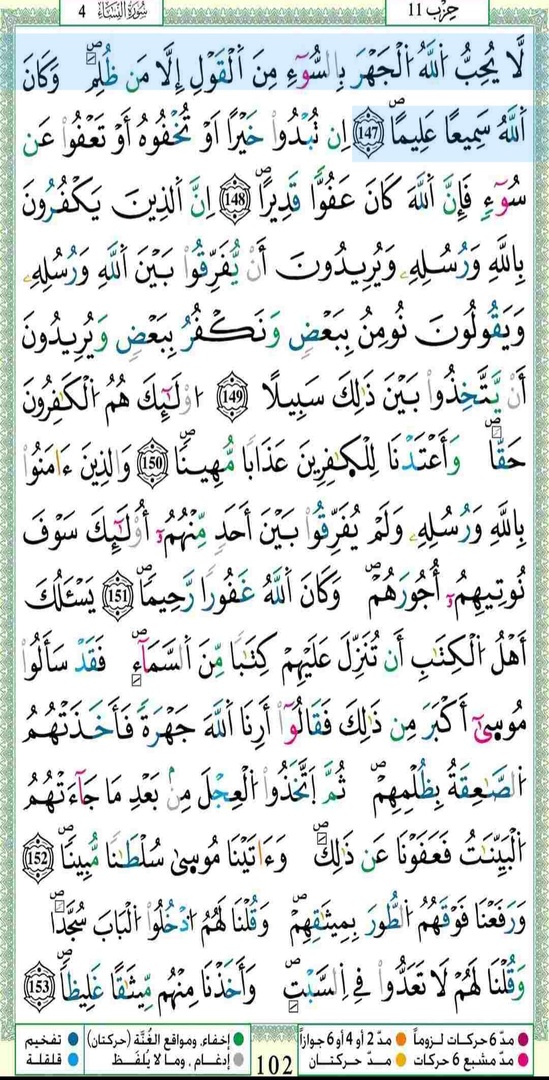 حِزْب 11
سُورَةُ النِّسَاءِ 4
لَّا يُحِبُّ اُللَّهُ اُلْجَهْرَ بِالسُّوٓءِ مِنَ اَلْقَوْلِ إِلَّا مَن ظُلِمَۖ وَكَانَ
اَللَّهُ سَمِيعًا عَلِيمًاۖ 147 اِن تُبْدُواْ خَيْرًا اَوْ تُخْفُوهُ أَوْ تَعْفُواْ عَن
سُوٓءٍ فَإِنَّ اَللَّهَ كَانَ عَفُوًّا قَدِيرًاۖ 148 اِنَّ اَلذِينَ يَكْفُرُونَ
بِاللَّهِ وَرُسُلِهِۦ وَيُرِيدُونَ أَنْ يُّفَرِّقُواْ بَيْنَ اَللَّهِ وَرُسُلِهِۦ
وَيَقُولُونَ نُومِنُ بِبَعْضٍ وَنَكْفُرُ بِبَعْضٍ وَيُرِيدُونَ
أَنْ يَّتَّخِذُواْ بَيْنَ ذَٰلِكَ سَبِيلًا 149 اُوْلَٰٓئِكَ هُمُ اُلْكَٰفِرُونَ
حَقًّاۖ وَأَعْتَدْنَا لِلْكٰ۪فِرِينَ عَذَابًا مُّهِينًاۖ 150 وَالذِينَ ءَامَنُواْ
بِاللَّهِ وَرُسُلِهِۦ وَلَمْ يُفَرِّقُواْ بَيْنَ أَحَدٍ مِّنْهُمُۥٓ أُوْلَٰٓئِكَ سَوْفَ
نُوتِيهِمُۥٓ أُجُورَهُمْۖ وَكَانَ اَللَّهُ غَفُورًا رَّحِيمًاۖ 151 يَسْـَٔلُكَ
أَهْلُ اُلْكِتَٰبِ أَن تُنَزِّلَ عَلَيْهِمْ كِتَٰبًا مِّنَ اَلسَّمَآءِۖ فَقَدْ سَأَلُواْ
مُوسَىٰٓ أَكْبَرَ مِن ذَٰلِكَ فَقَالُوٓاْ أَرِنَا اَللَّهَ جَهْرَةً فَأَخَذَتْهُمُ
اُلصَّٰعِقَةُ بِظُلْمِهِمْۖ ثُمَّ اَتَّخَذُواْ اُلْعِجْلَ مِنۢ بَعْدِ مَا جَآءَتْهُمُ
اُلْبَيِّنَٰتُ فَعَفَوْنَا عَن ذَٰلِكَۖ وَءَاتَيْنَا مُوسَىٰ سُلْطَٰنًا مُّبِينًاۖ 152
وَرَفَعْنَا فَوْقَهُمُ اُلطُّورَ بِمِيثَٰقِهِمْۖ وَقُلْنَا لَهُمُ اُدْخُلُواْ اُلْبَابَ سُجَّدًاۖ
وَقُلْنَا لَهُمْ لَا تَعَدُّواْ فِے اِلسَّبْتِۖ وَأَخَذْنَا مِنْهُم مِّيثَٰقًا غَلِيظًاۖ 153
مدّ 6 حركات لزوماً مدّ 2 أو 4 أو 6 جوازاً
مدّ مشبع 6 حركات مدّ حركتان
102
إخفاء، ومواقع الغُنَّة (حركتان) تفخيم
إدغام، وما لا يُلفَظ قلقلة